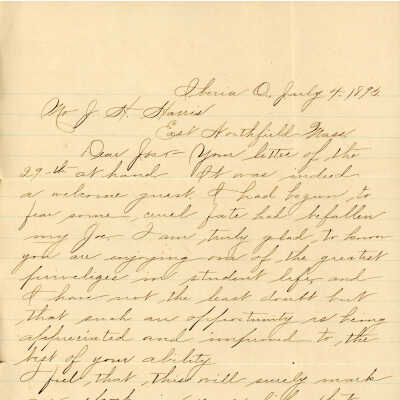 Iberia O. July 4. 1892
Mr J. H. Harris
East Northfield Mass
Dear Joe – Your letter of the
29th at hand It was indeed
a welcome guest. I had begun to
fear some cruel fate had befallen
my Joe. I am truly glad to know
you are enjoying one of the greatest
privileges in student life, and
I have not the least doubt but
that such an opportunity is being
appreciated and improved to the
best of your ability
I feel that this will surely mark